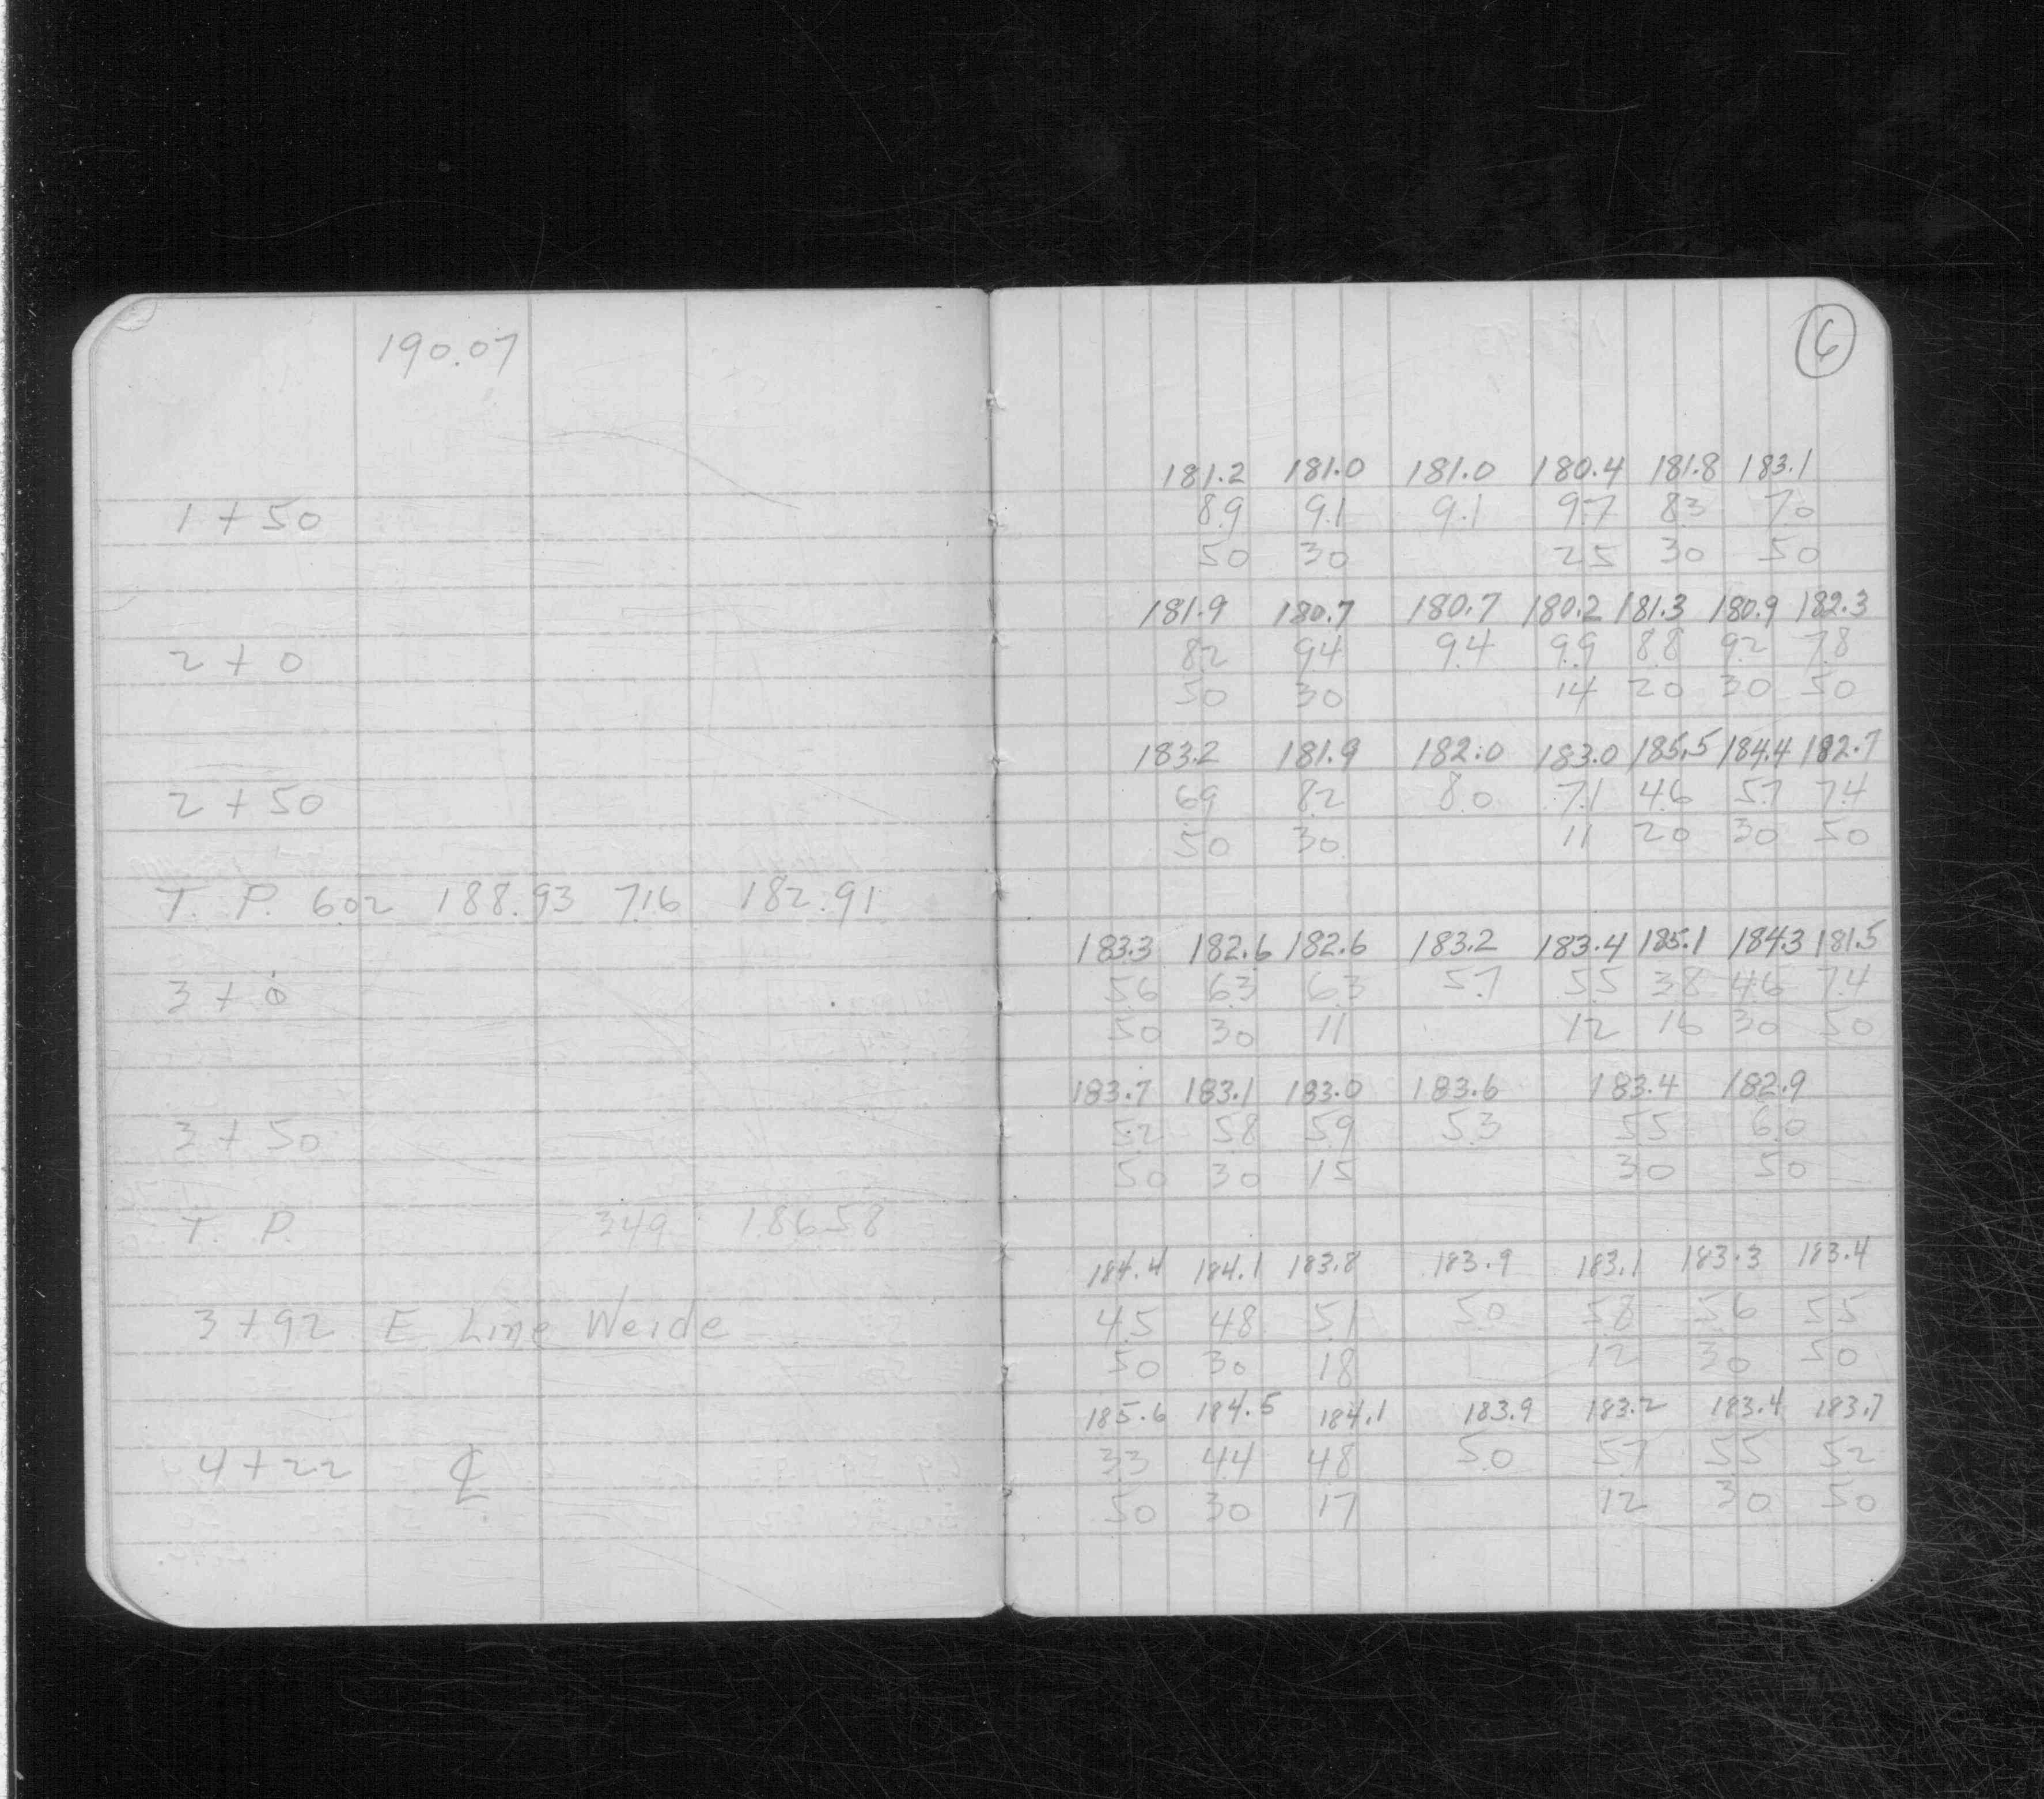 190.07
6
181.2 181.0 181.0 180.4 181.8 183.1
1+50 8.9 9.1 9.1 9.7 8.3 7.0
50 30 25 30 50
181.9 180.7 180.7 180.2 181.3 180.9 182.3
2+0 8.2 9.4 9.4 9.9 8.8 9.2 7.8
50 30 14 20 30 50
183.2 181.9 182.0 183.0 185.5 184.4 182.7
2+50 6.9 8.2 8.0 7.1 4.6 5.7 7.4
50 30 11 20 30 50
T. P. 6.02 188.93 7.16 182.91
183.3 182.6 182.6 183.2 183.4 185.1 184.3 181.5
3+0 5.6 6.3 6.3 5.7 5.5 3.8 4.6 7.4
50 30 11 12 16 30 50
183.7 183.1 183.0 183.6 183.4 182.9
3+50 5.2 5.8 5.9 5.3 5.5 6.0
50 30 15 30 50
T. P. 3.49 186.58
184.4 184.1 183.8 183.9 183.1 183.3 183.4
3+92 E Line Weide 4.5 4.8 5.1 5.0 5.8 5.6 5.5
50 30 18 12 30 50
185.6 184.5 184.1 183.9 183.2 183.4 183.7
4+22 ℄ 3.3 4.4 4.8 5.0 5.7 5.5 5.2
50 30 17 12 30 50